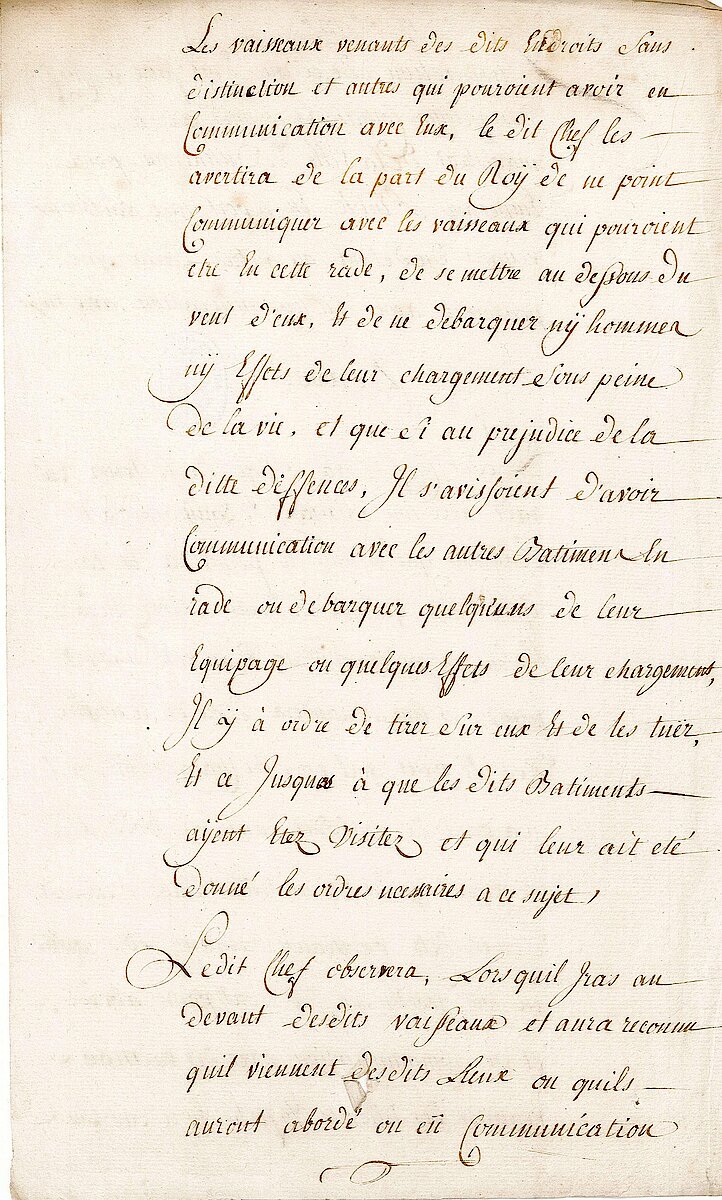 Les vaisseaux venants des dits Endroits Sans
distinction et autres qui pouroient avoir eu
Communication avec Eux, le dit Chef les
avertira de la part du Roÿ de ne point
Communiquer avec les vaisseaux qui pouroient
etre En cette rade, de se mettre au dessous du
vent d'eux, Et de ne debarquer nÿ hommes
nÿ Effets de leur chargement sous peine
de la vie, et que si au prejudice de la
ditte deffences, Il s'avissoient d'avoir
Communication avec les autres Batimens En
rade ou debarquer quelqu'uns de leur
Equipage ou quelques Effets de leur chargement,
Il ÿ à ordre de tirer sur eux Et de les tuër,
Et ce Jusques à que les dits Batiments
aÿent Etez Visitez et qui leur ait eté
donné les ordres necessaires a ce sujet,
Ledit Chef observera, Lorsquil Iras au
devant desdits vaisseaux et aura reconnu
quil viennent desdits Lieux ou quils
auront abordé ou eü Communication